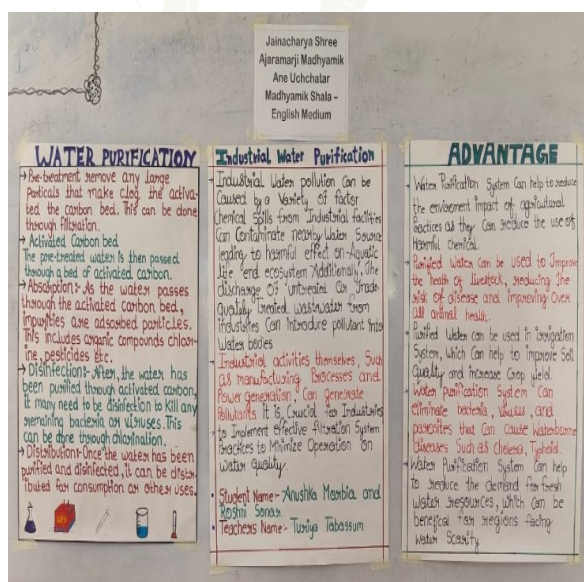 Jainacharya Shree
Ajaramarji Madhyamik
Ane Uchchatar
Madhyamik Shala –
English Medium
WATER PURIFICATION
→ Pre-treatment remove any large
Particals that make clog the activa-
ted the carbon bed. This can be done
through filtration.
→ Activated Carbon bed
The pre-treated water is then passed
through a bed of activated carbon.
→ Absorption:- As the water passes
through the activated carbon bed,
impurities are adsorbed particles.
This includes organic compounds chlor-
ine, pesticides etc.
→ Disinfection:- After, the water has
been purified through activated carbon,
it many need to be disinfection to kill any
remaining bacteria or viruses. This
can be done through chlorination.
→ Distribution:- Once the water has been
purified and disinfected, it can be distr-
ibuted for consumption or other uses.
Industrial Water Purification
→ Industrial Water pollution Can be
Caused by a Variety of factor
chemical Spills from Industrial facilities
Can Contaminate nearby Water Source
leading to harmful effect on Aquatic
life end ecosystem Additionally, The
discharge of untreated Car Inade-
Quately treated wastwater from
industries Can introduce pollutant into
Water bodies
→ Industrial activities themselves, Such
as manufacturing Processes and
Power generation, Can generate
Pollutants It is, Crucial for Industries
→ to Implement effective filtration System
Practices to Minimize Operation on
Water Quality.
• Student Name:- Anushka Morbia and
Roshni Sonar
• Teachers Name:- Turiya Tabassum
ADVANTAGE
→ Water Purification System Can help to reduce
the enviroment impact of agricultural
Practices as they Can reduce the use of
Harmful chemical.
→ Purified Water can be used to Improve
the health of livestock, reducing The
risk of disease and improving Over
all animal health.
→ Purified Water Can be used in irrigation
System, which Can help to improve Soil
Quality and Increase Crop yield.
→ Water Purification System Can
eliminate bacteria, Viruses, and
parasites that Can Cause Waterborne
diseases Such as Cholera, Typhoid.
→ Water Purification System Can help
to reduce the demand for fresh
Water resources, which Can be
benefical for regions facing
Water Scarity